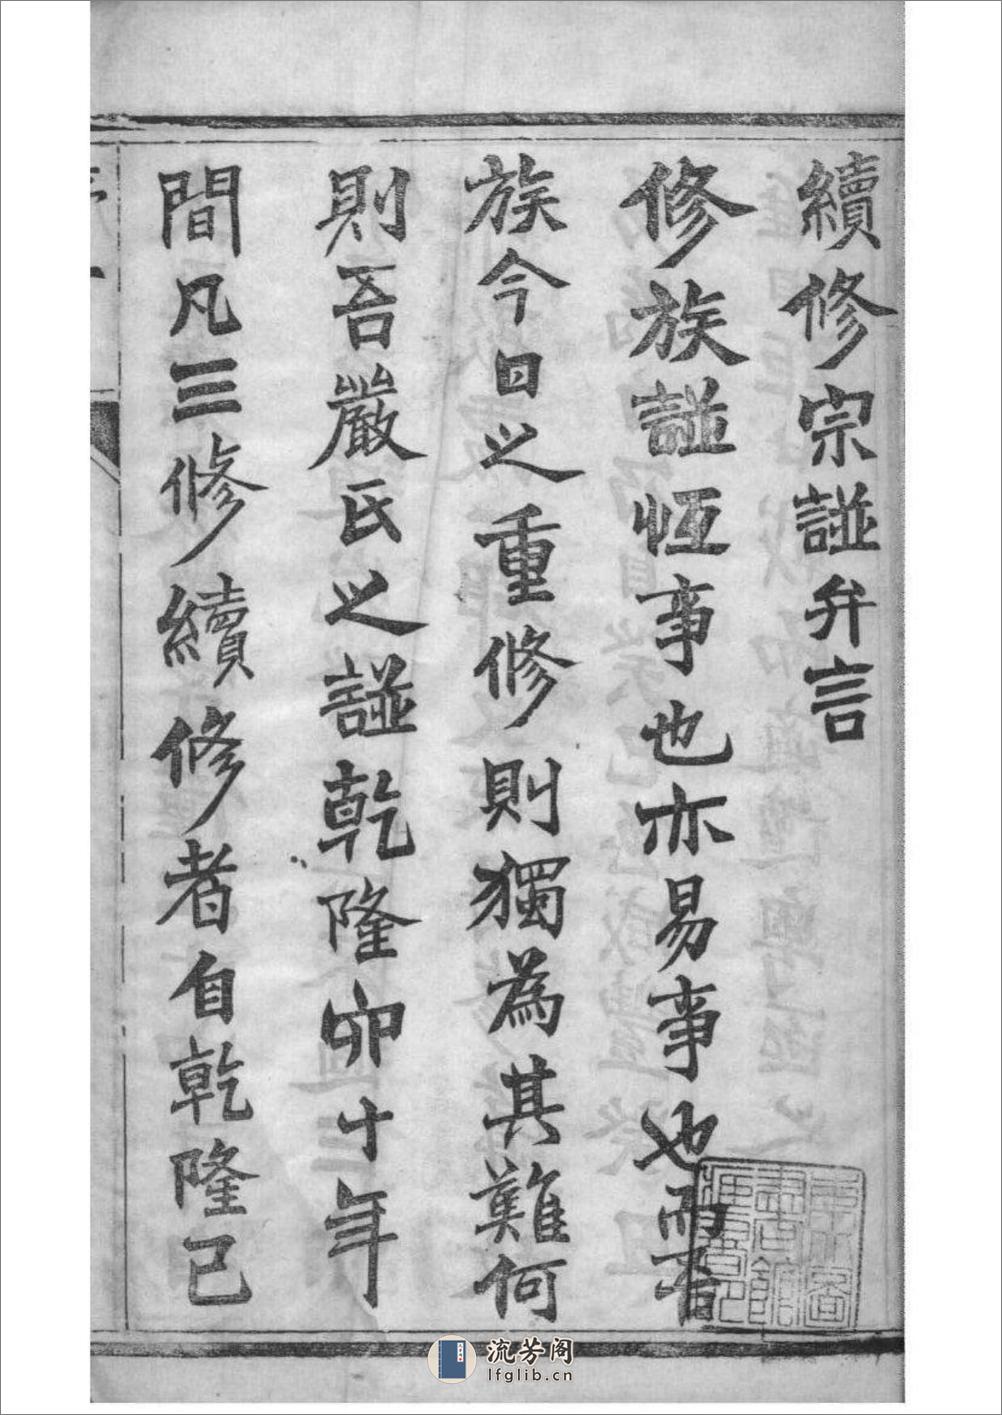 續修宗譜弁言
修族譜恆事也亦易事也而吾
族今日之重修則獨為其難何
則吾嚴氏之譜乾隆四十年
間凡三修續修者自乾隆己
流芳阁
lfglib.cn